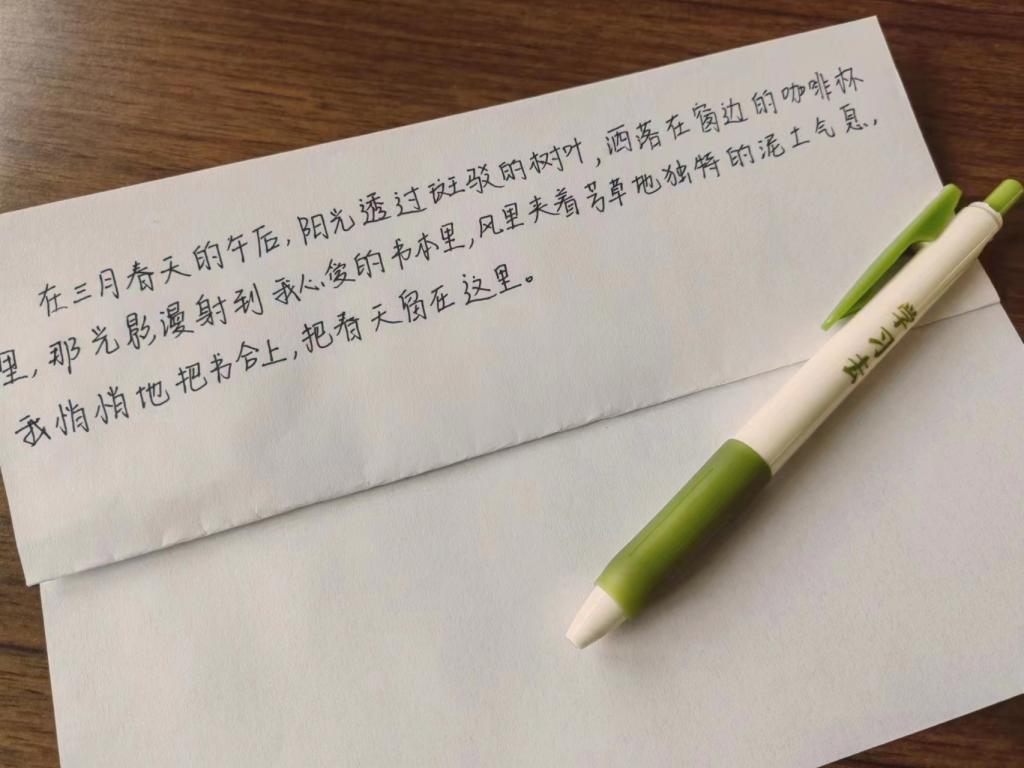 在三月春天的午后,阳光透过斑驳的树叶,洒落在窗边的咖啡杯
里,那光影漫射到我心爱的书本里,风里夹着芳草地独特的泥土气息,
我悄悄地把书合上,把春天留在这里。
学习去